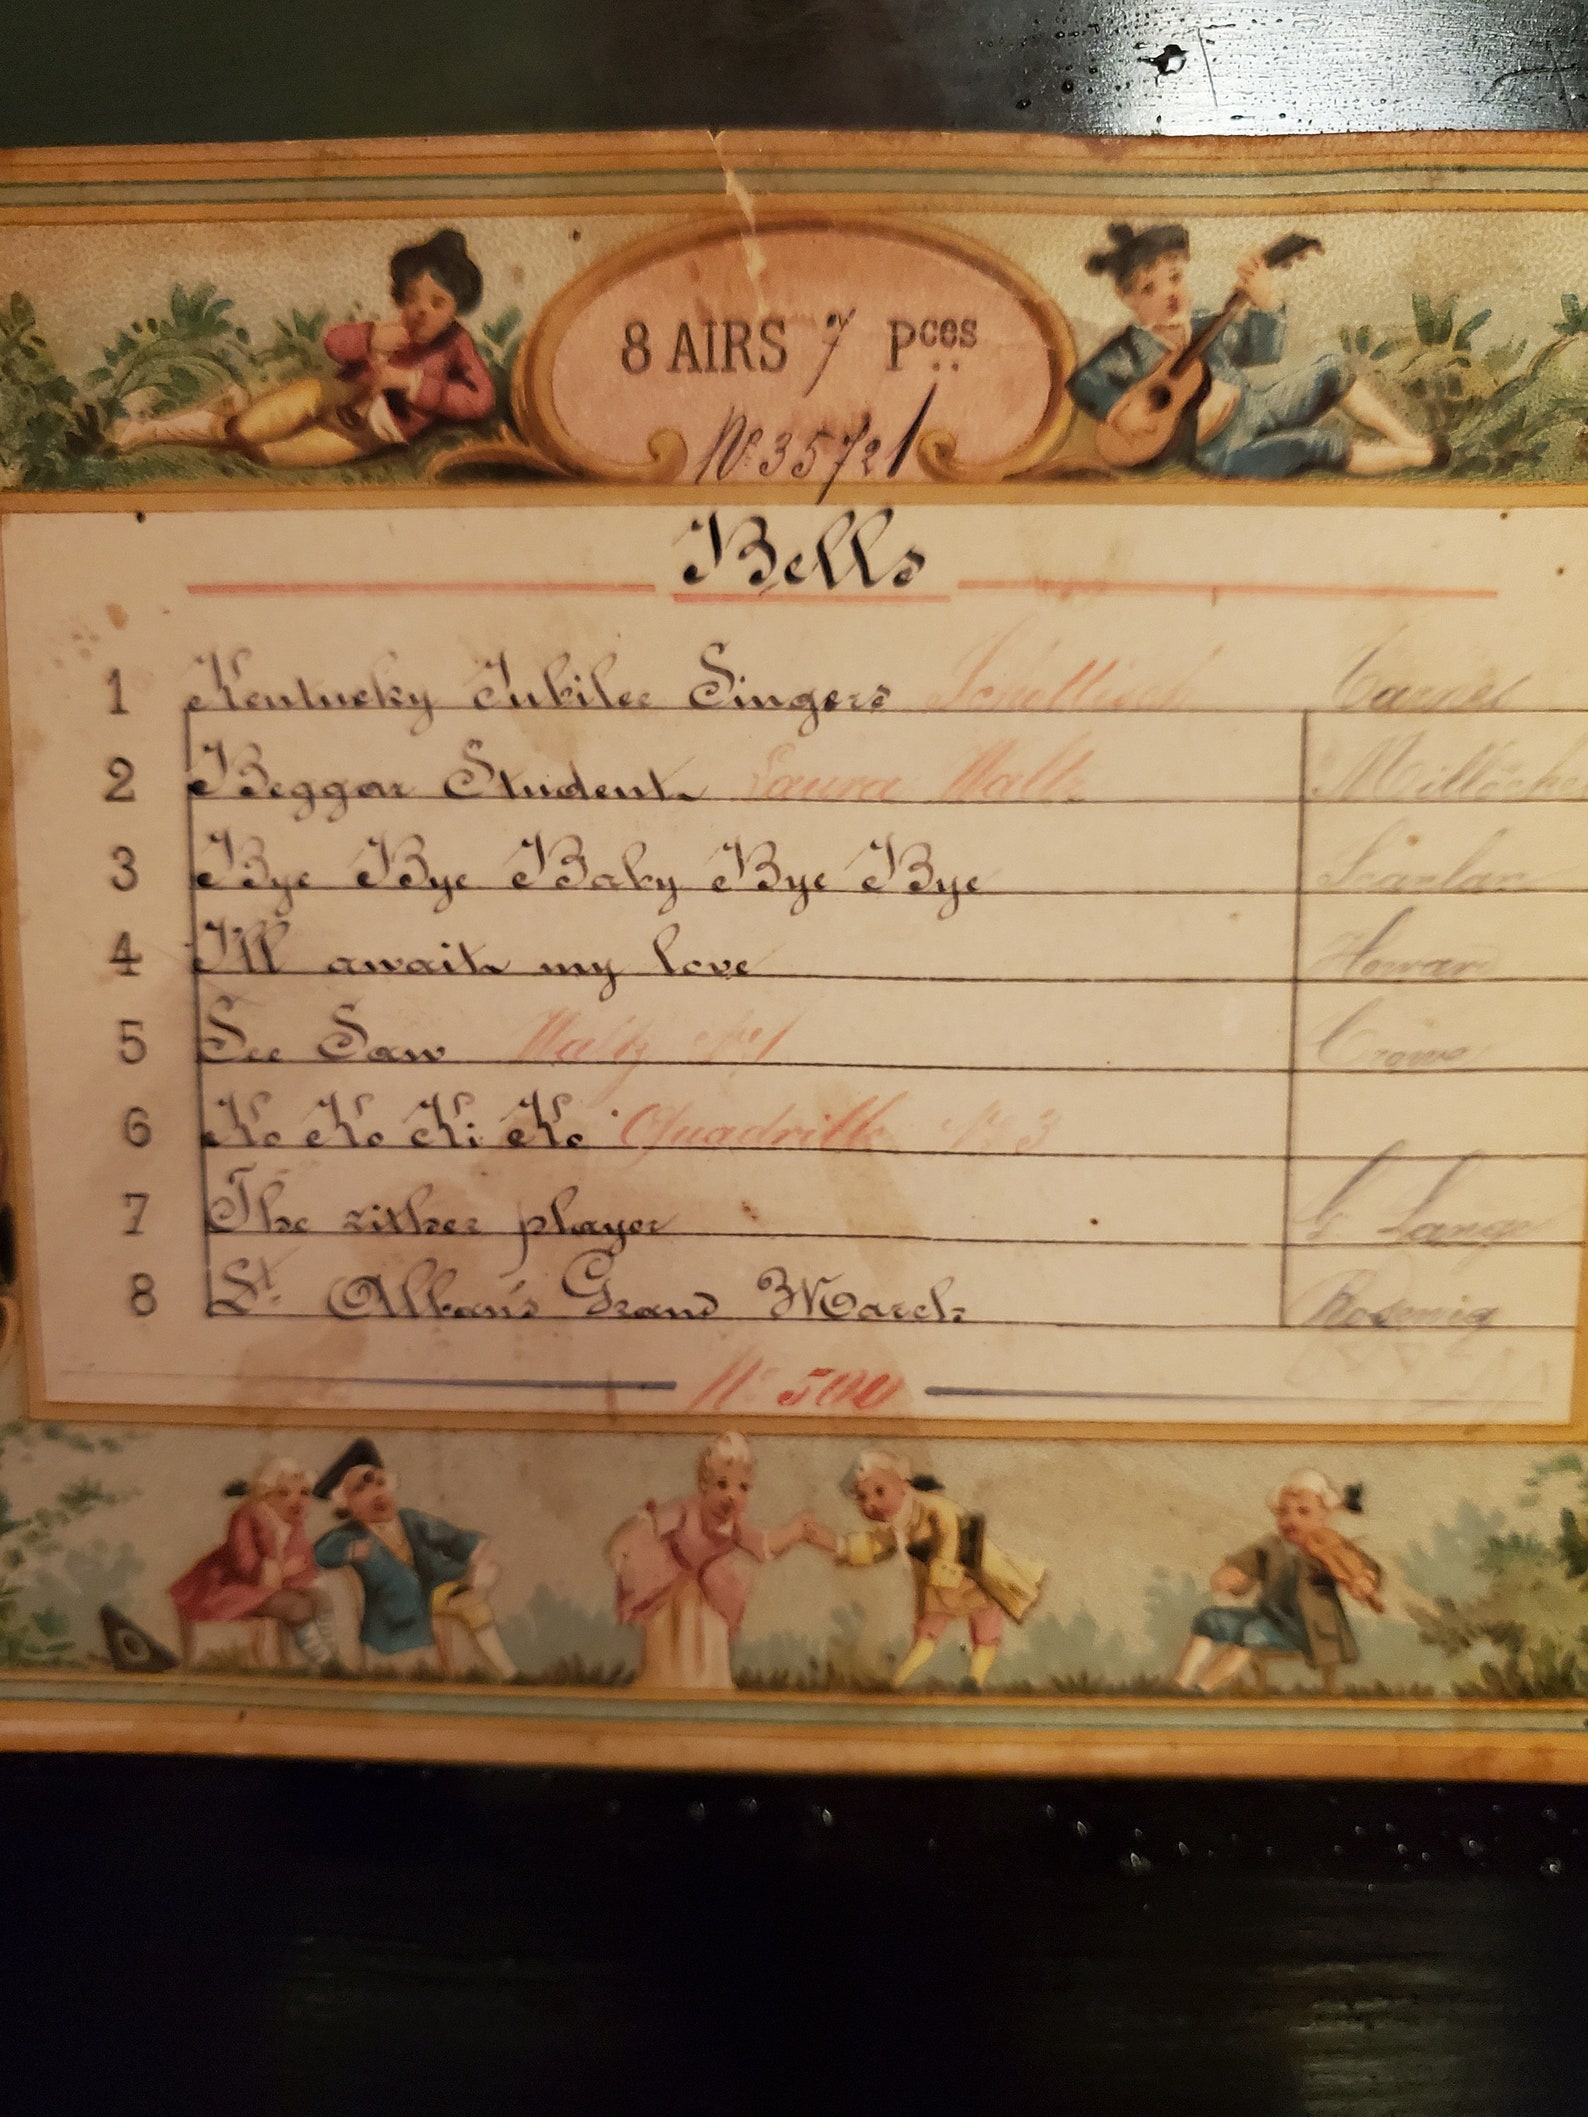 8 AIRS 7 Pces
No. 35721
Bells
1 Kentucky Jubilee Singers Schottisch
2 Beggar Student Laura Waltz Millöcke
3 Bye Bye Baby Bye Bye Scanlan
4 I'll await my love Howard
5 See Saw Waltz No 1 Crowe
6 Ko Ko Ki Ko Quadrille No 3
7 The zither player G. Lange
8 St. Alban's Grand March Rosewig
No. 500